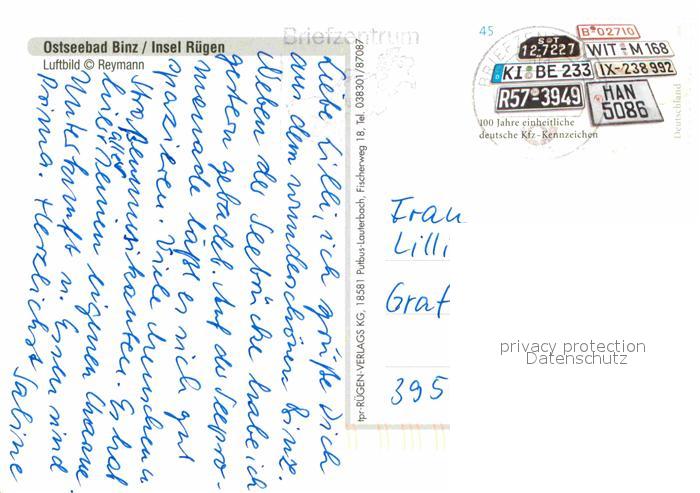 Ostseebad Binz / Insel Rügen
Luftbild © Reymann
Briefzentrum
Liebe Lilli, ich grüße Dich
aus dem wunderschönen Binz.
Neben der Seebrücke habe ich
gestern gebadet. Auf der Seepro-
menade läßt es sich gut
spazieren. Viele Menschen u
Straßenmusikanten. Es hat
hier alles seinen eigenen Charme.
Unterkunft u. Essen sind
prima. Herzlichst Sabine
tpr·RÜGEN-VERLAGS KG, 18581 Putbus-Lauterbach, Fischerweg 18, Tel. 038301/87087
45
B 02710
S T
12-7227
WIT-M 168
KI BE 233
IX-238 992
R57-3949
HAN
5086
100 Jahre einheitliche
deutsche Kfz-Kennzeichen
Deutschland
Frau
Lilli
Graf
395
privacy protection
Datenschutz